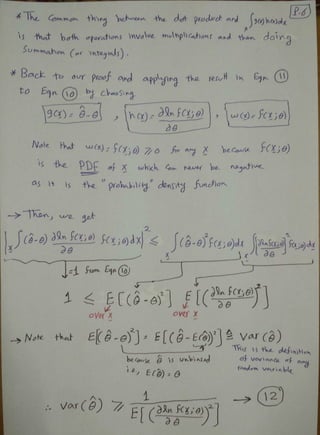 P.6
* The common thing between the dot product and ∫g(x)h(x)dx
is that both operations involve multiplications and then doing
summation (or integrals).
* Back to our proof and applying the result in Eqn (11)
to Eqn (10) by choosing
g(x) = θ̂ - θ , h(x) = ∂ln f(x;θ)/∂θ , w(x) = f(x;θ)
Note that w(x) = f(x;θ) ≥ 0 for any x because f(x;θ)
is the PDF of x which can never be negative
as it is the "probability" density function
→ Then, we get
|∫(θ̂-θ) ∂ln f(x;θ)/∂θ f(x;θ)dx|² ≤ ∫(θ̂-θ)² f(x;θ)dx ∫[∂ln f(x;θ)/∂θ]² f(x;θ)dx
=1 from Eqn (10)
1 ≤ E[(θ̂-θ)²] E[(∂ln f(x;θ)/∂θ)²]
over x over x
→ Note that E[(θ̂-θ)²] = E[(θ̂-E(θ̂))²] ≜ var(θ̂)
because θ̂ is unbiased
i.e., E(θ̂) = θ
This is the definition
of variance of any
random variable
∴ var(θ̂) ≥ 1/E[(∂ln f(x;θ)/∂θ)²] → (12)